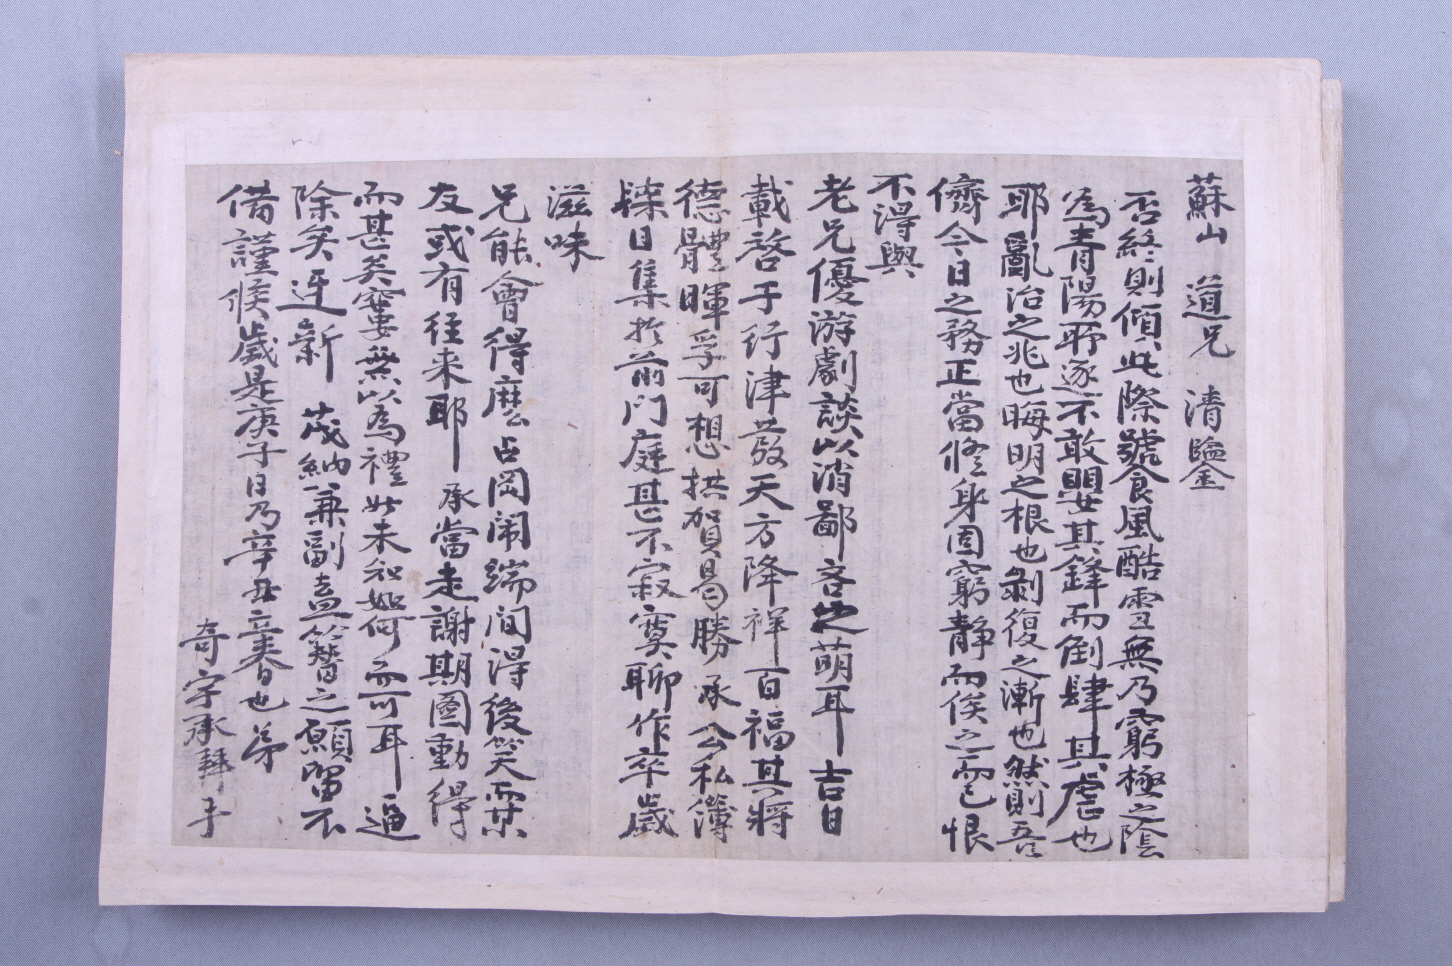 蘇山 道兄 清鑒
否終則傾此際虢食風酷雪無乃窮極之陰
為青陽所逐不敢嬰其鋒而倒肆其虐也
耶亂治之兆也晦明之根也剝復之漸也然則吾
儕今日之務正當修身固窮靜而俟之而已恨
不得與
老兄優游劇談以消鄙吝之萌耳 吉日
載啓于行津發天方降祥百福其將
德體暉孚可想拱賀曷勝承公私簿
牒日集於前門庭甚不寂寞聊作卒歲
滋味
兄能會得麽占岡閙端間得後笑而果
友或有往來耶 承當走謝期圖動得
而甚矣窶無以為禮此未知如何而可耳 適
除矣迓新 茂納兼副盍簪之願留不
備謹候歲是庚子日乃辛丑立春也弟
奇宇承拜手